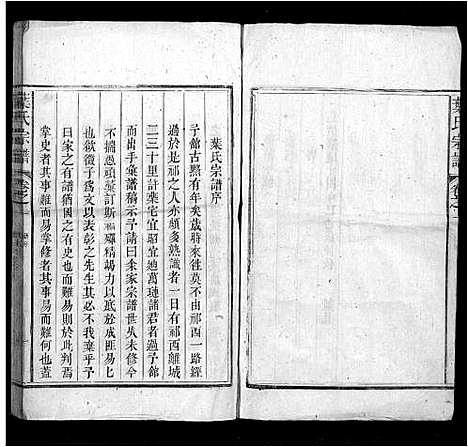 葉氏宗譜
葉氏宗譜序
予館古黟有年矣歲時來徃莫不由祁西一路經
過於是祁之人亦頗多熟識者一日有祁西離城
二三十里許葉宅宜昭宜迪萬璉諸君者過予館
而出手彙譜稿示予請曰余家宗譜世久未修今
不揣愚頑彙訂斯殫精竭力以底於成匪易也
也欲復子爲文以表彰之先生其必不我棄乎予
曰家之有譜猶國之有史也而難易則於此判焉
掌史者其事難而易掌修者其事易而難何也蓋
葉氏宗譜